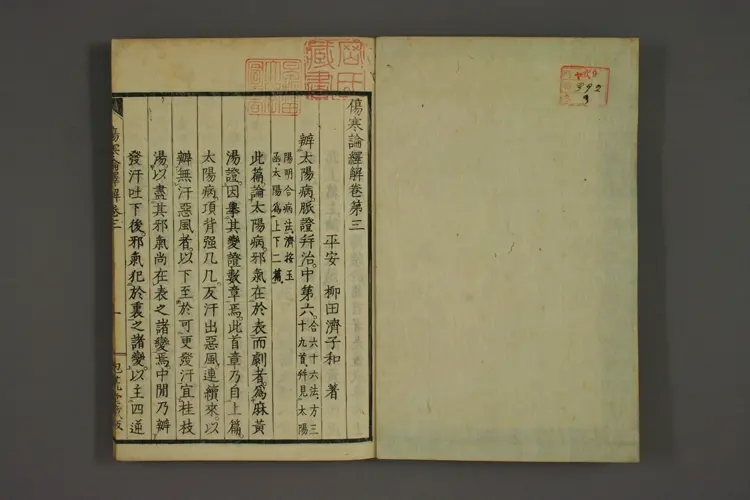 傷寒論繹解卷第三
平安 柳田濟子和 著
辨太陽病脈證幷治中第六 合六十六法方三十九首幷見太陽
陽明合病法濟按玉函太陽爲上下二篇
此篇論太陽病邪氣在於表而劇者爲麻黃
湯證因擧其變證數章焉此首章乃自上篇
太陽病項背强几几反汗出惡風連續來以
辨無汗惡風者以下至於可更發汗宜桂枝
湯以盡其邪氣尚在表之諸變焉中間乃辨
發汗吐下後邪氣犯於裏之諸變以主四逆
傷寒論繹解卷三
一
藏書
392
3